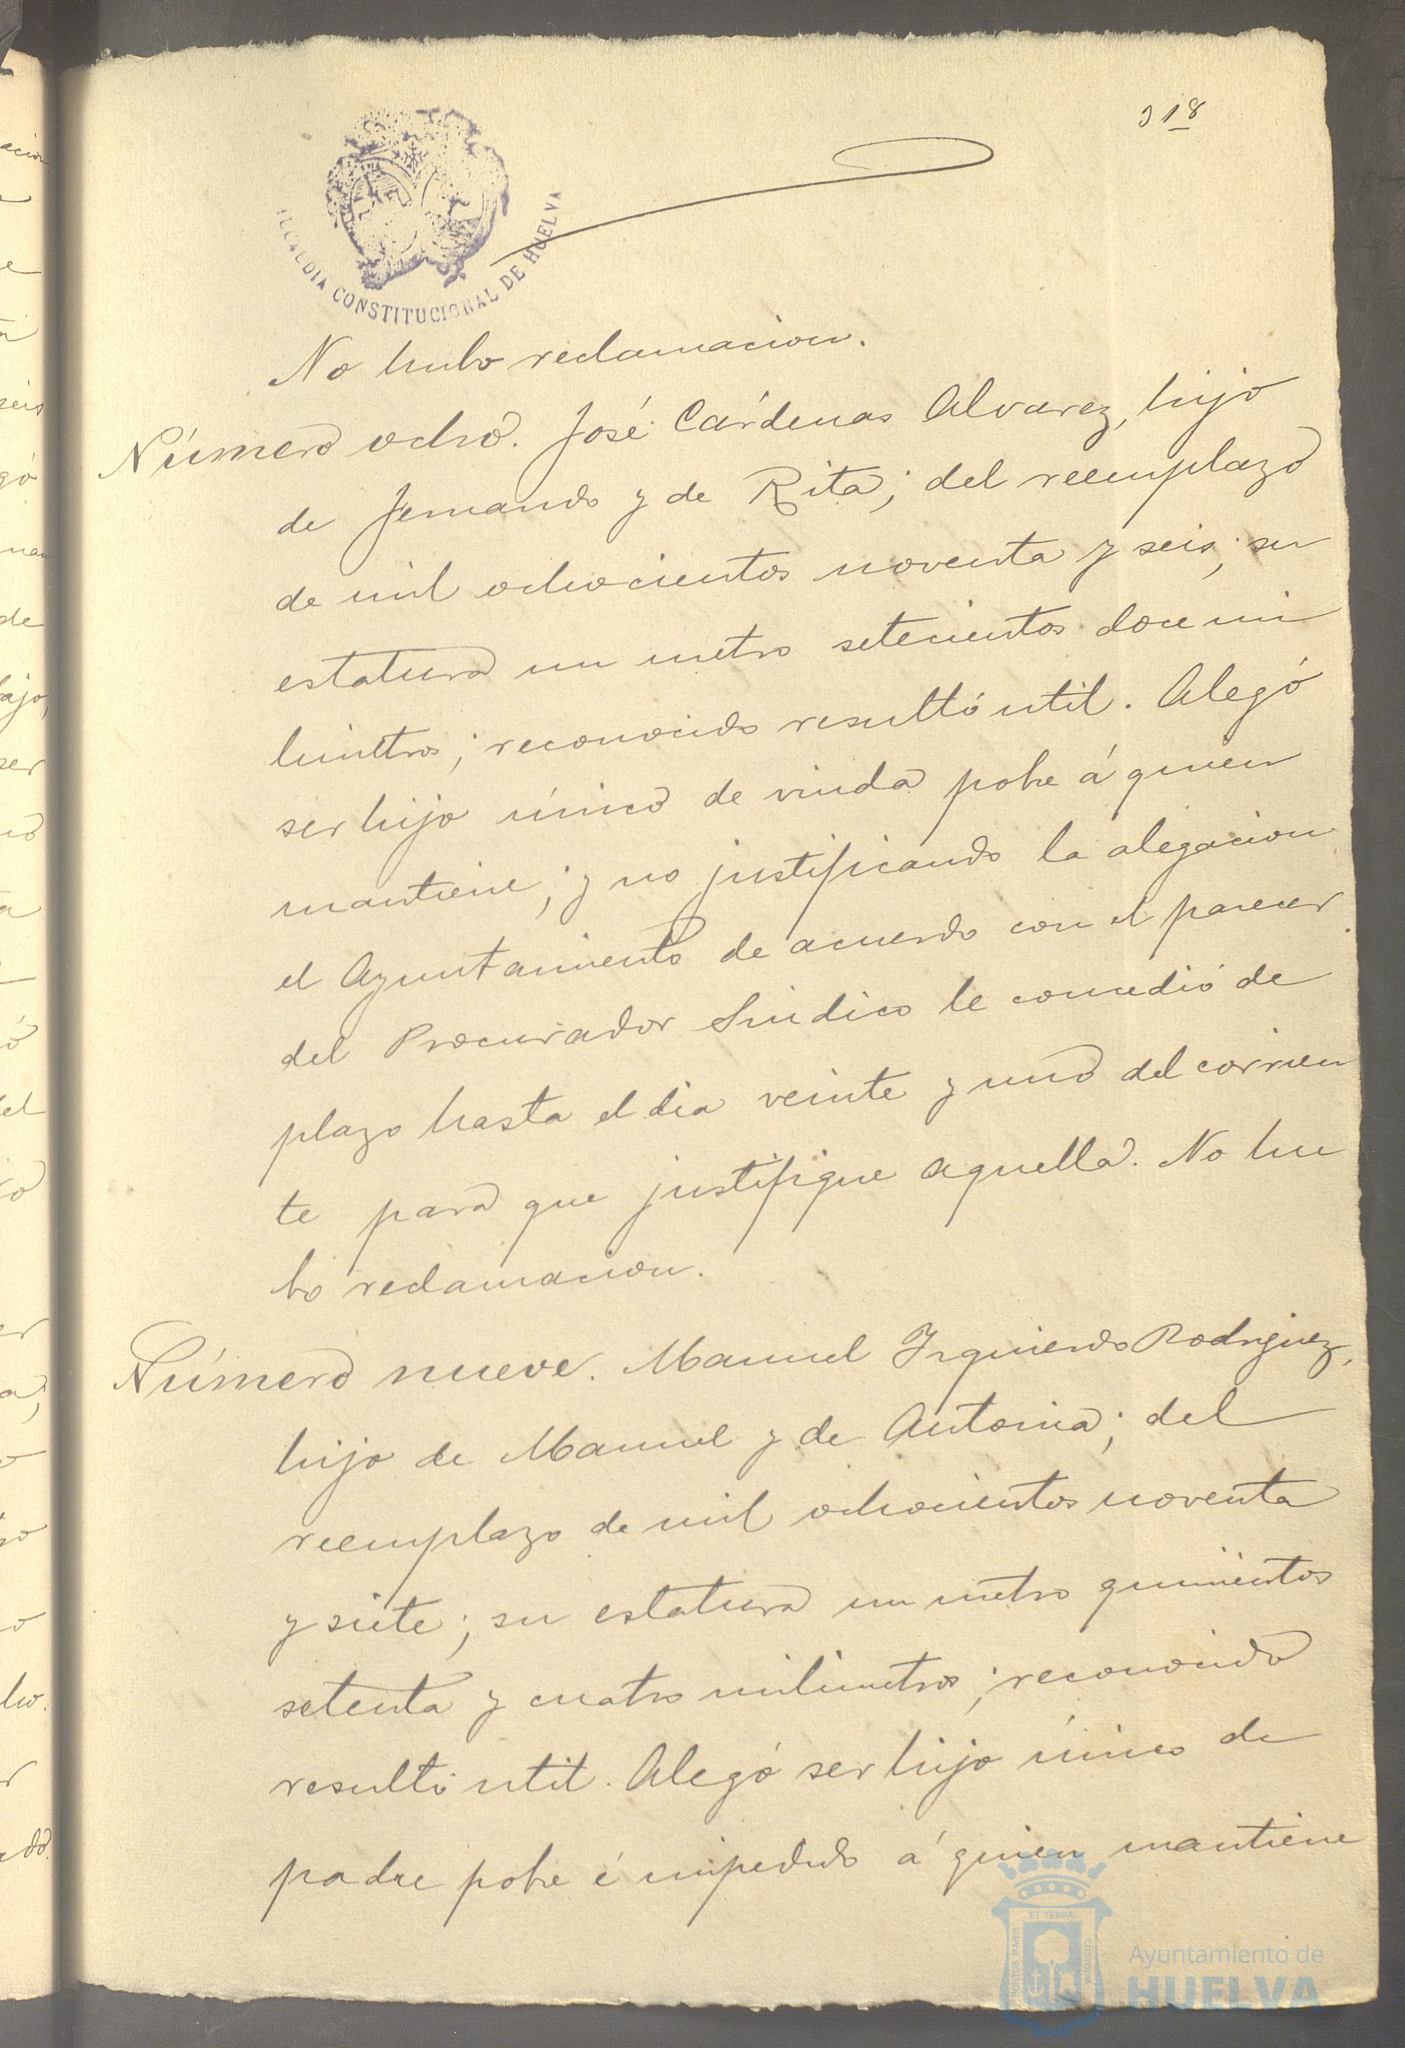 318
ALCALDIA CONSTITUCIONAL DE HUELVA
No hubo reclamacion.
Número ocho. José Cárdenas Alvarez, hijo
de Fernando y de Rita; del reemplazo
de mil ochocientos noventa y seis; su
estatura un metro setecientos doce mi
límetros; reconocido resultó util. Alegó
ser hijo único de viuda pobre á quien
mantiene; y no justificando la alegacion
el Ayuntamiento de acuerdo con el parecer
del Procurador Sindico le concedió de
plazo hasta el dia veinte y uno del corrien
te para que justifique aquella. No hu
bo reclamacion.
Número nueve. Manuel Izquierdo Rodriguez,
hijo de Manuel y de Antonia; del
reemplazo de mil ochocientos noventa
y siete; su estatura un metro quinientos
setenta y cuatro milimetros; reconocido
resultó util. Alegó ser hijo único de
padre pobre é impedido á quien mantiene
Ayuntamiento de
HUELVA